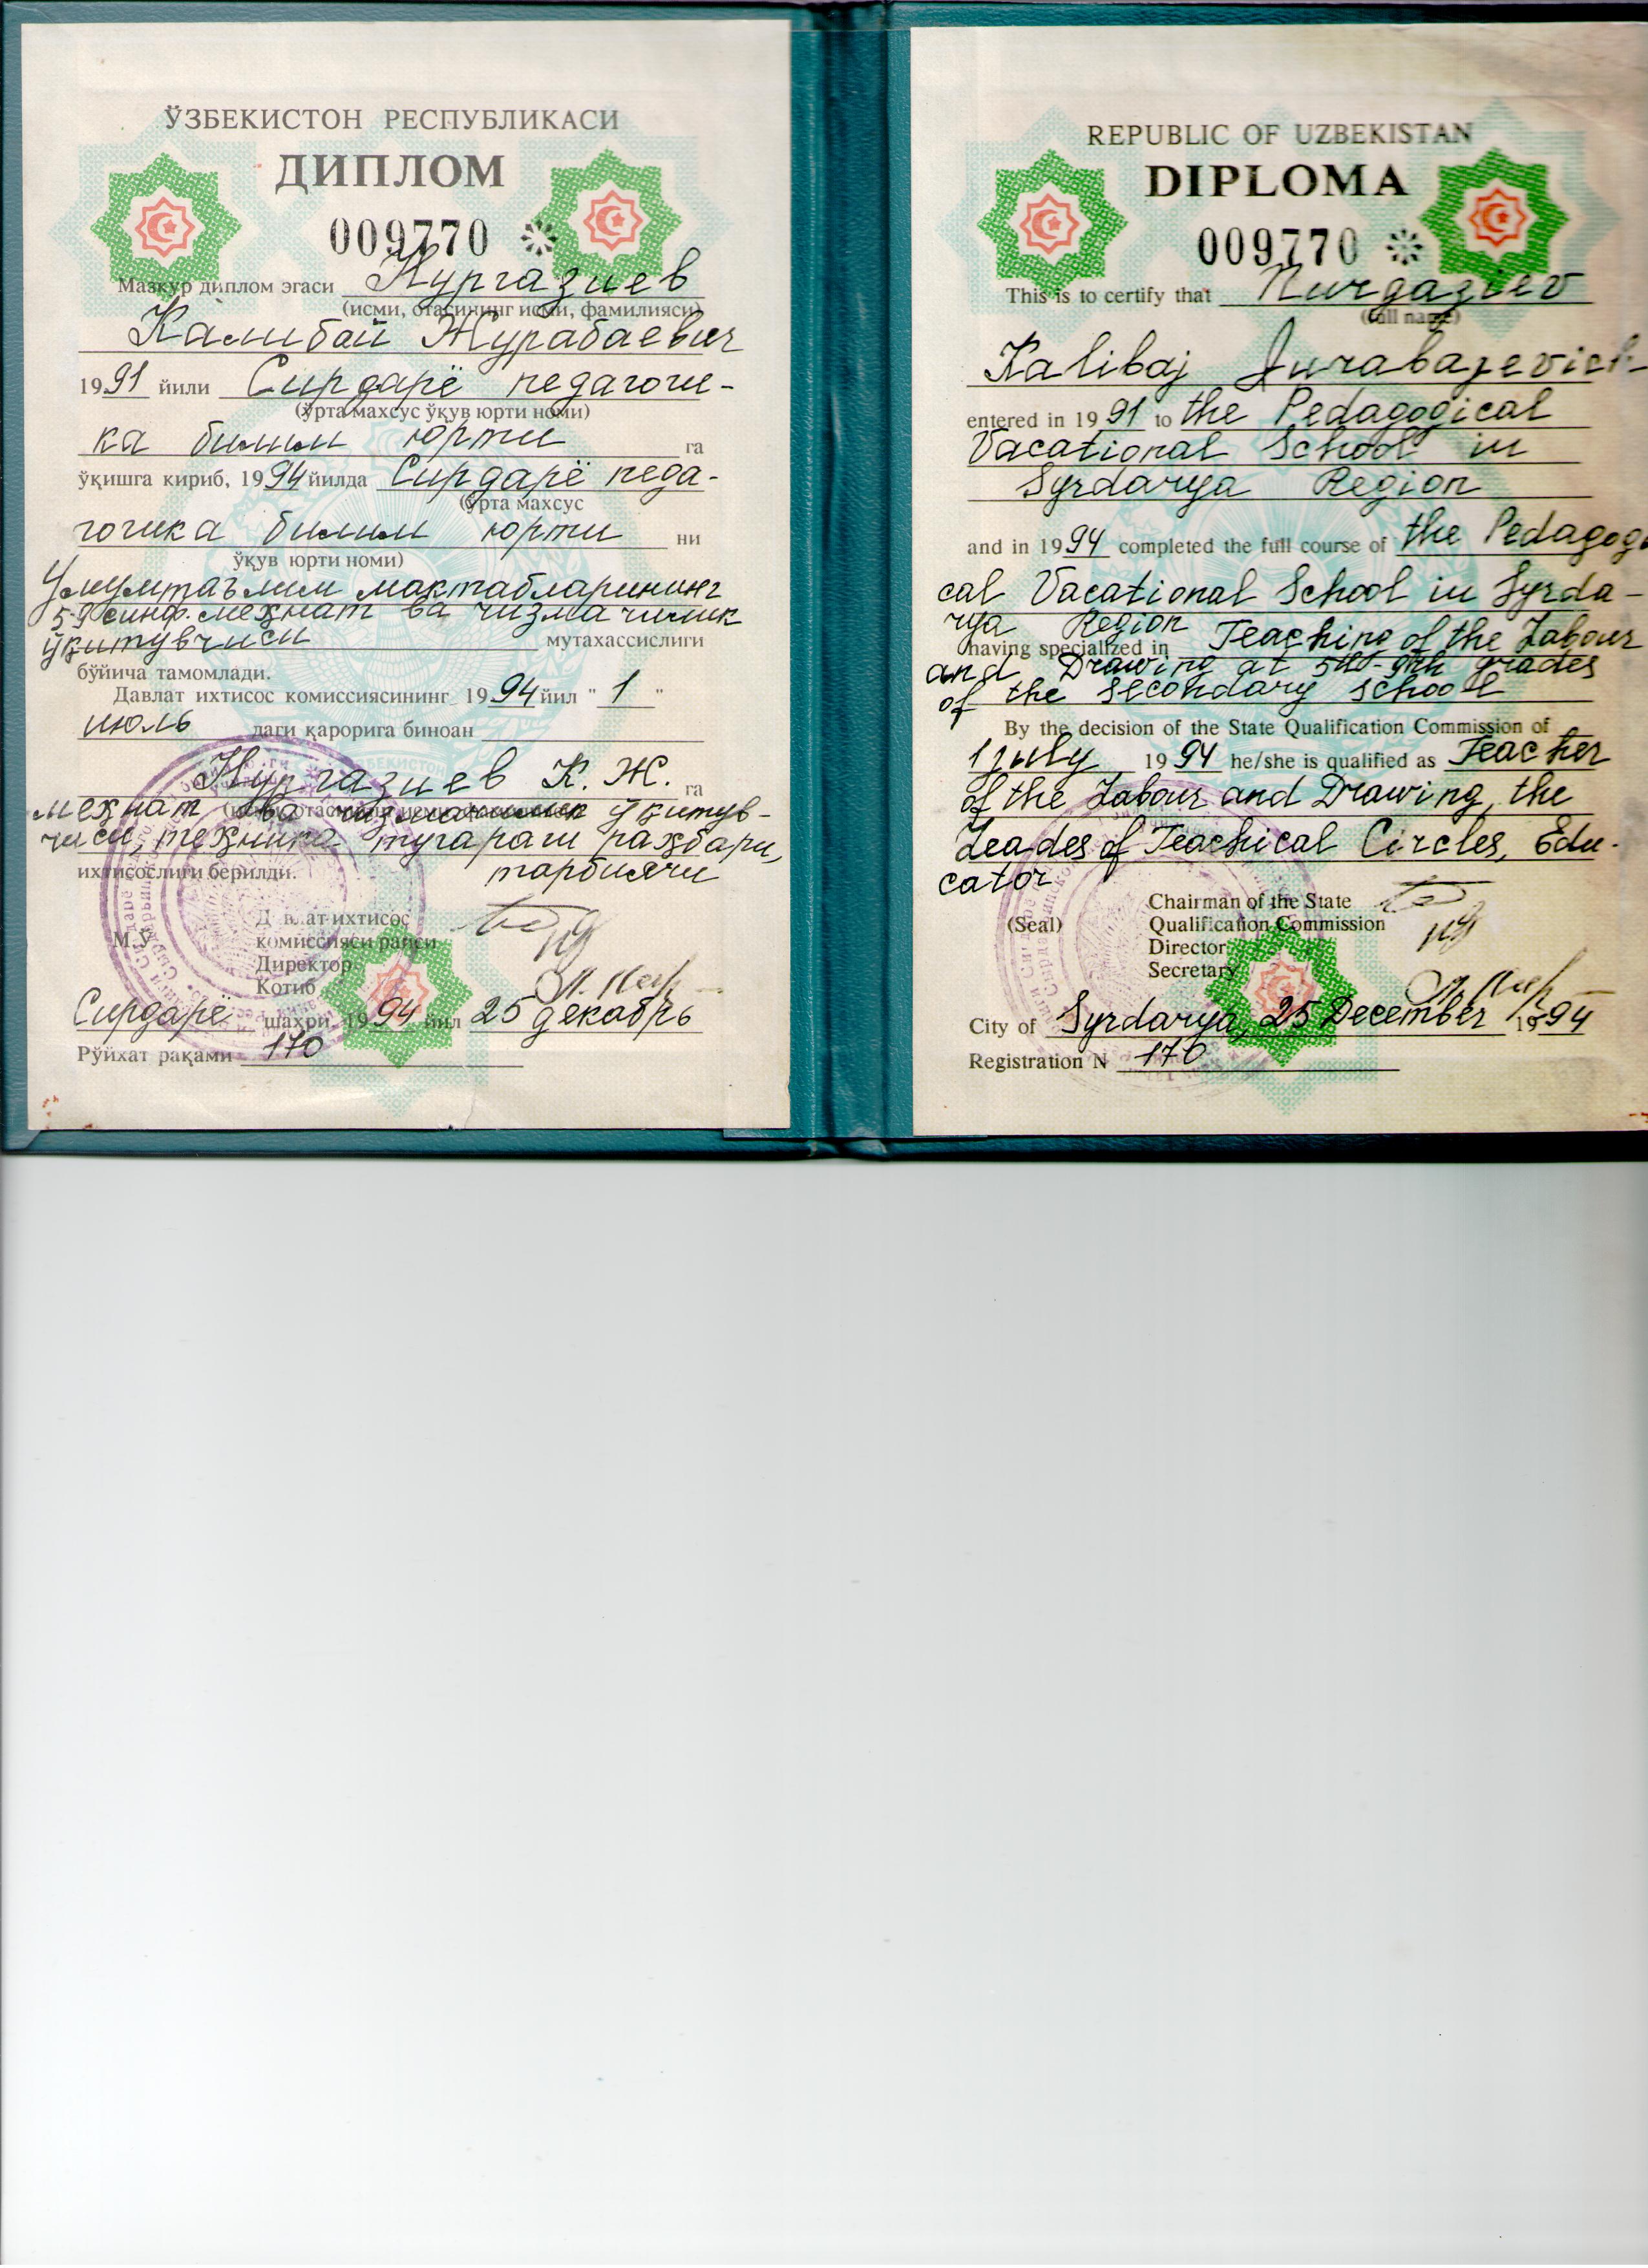 ЎЗБЕКИСТОН РЕСПУБЛИКАСИ
ДИПЛОМ
009770
Мазкур диплом эгаси Нургазиев
(исми, отасининг исми, фамилияси)
Калибай Журабаевич
1991 йили Сирдарё педагоги-
(ўрта махсус ўқув юрти номи)
ка билим юрти га
ўқишга кириб, 1994 йилда Сирдарё педа-
(ўрта махсус
гогика билим юрти ни
ўқув юрти номи)
Умумтаълим мактабларининг
5-9 синф. меҳнат ва чизмачилик
ўқитувчиси мутахассислиги
бўйича тамомлади.
Давлат ихтисос комиссиясининг 1994 йил "1"
июль даги қарорига биноан
Нургазиев К. Ж. га
меҳнат ва чизмачилик ўқитув-
чиси, техника тугараги раҳбари,
ихтисослиги берилди. тарбиячи
М.Ў.
Давлат ихтисос
комиссияси раиси
Директор
Котиб
Сирдарё шаҳри, 1994 йил 25 декабрь
Рўйхат рақами 170
REPUBLIC OF UZBEKISTAN
DIPLOMA
009770
This is to certify that Nurgaziev
(full name)
Kalibaj Jurabajevich
entered in 1991 to the Pedagogical
Vacational School in
Syrdarya Region
and in 1994 completed the full course of the Pedagogi
cal Vacational School in Syrda-
rya Region
having specialized in Teaching of the Labour
and Drawing at 5th-9th grades
of the secondary school
By the decision of the State Qualification Commission of
1 july 1994 he/she is qualified as Teacher
of the Labour and Drawing, the
Leades of Teachical Circles, Edu-
cator
(Seal)
Chairman of the State
Qualification Commission
Director
Secretary
City of Syrdarya, 25 December 1994
Registration N 170